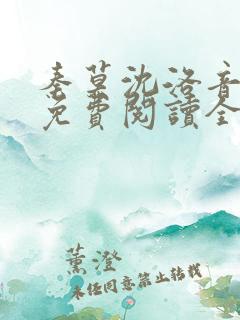 秦墓沈澄音
免費閱讀全
薰澄
未經同意禁止轉載